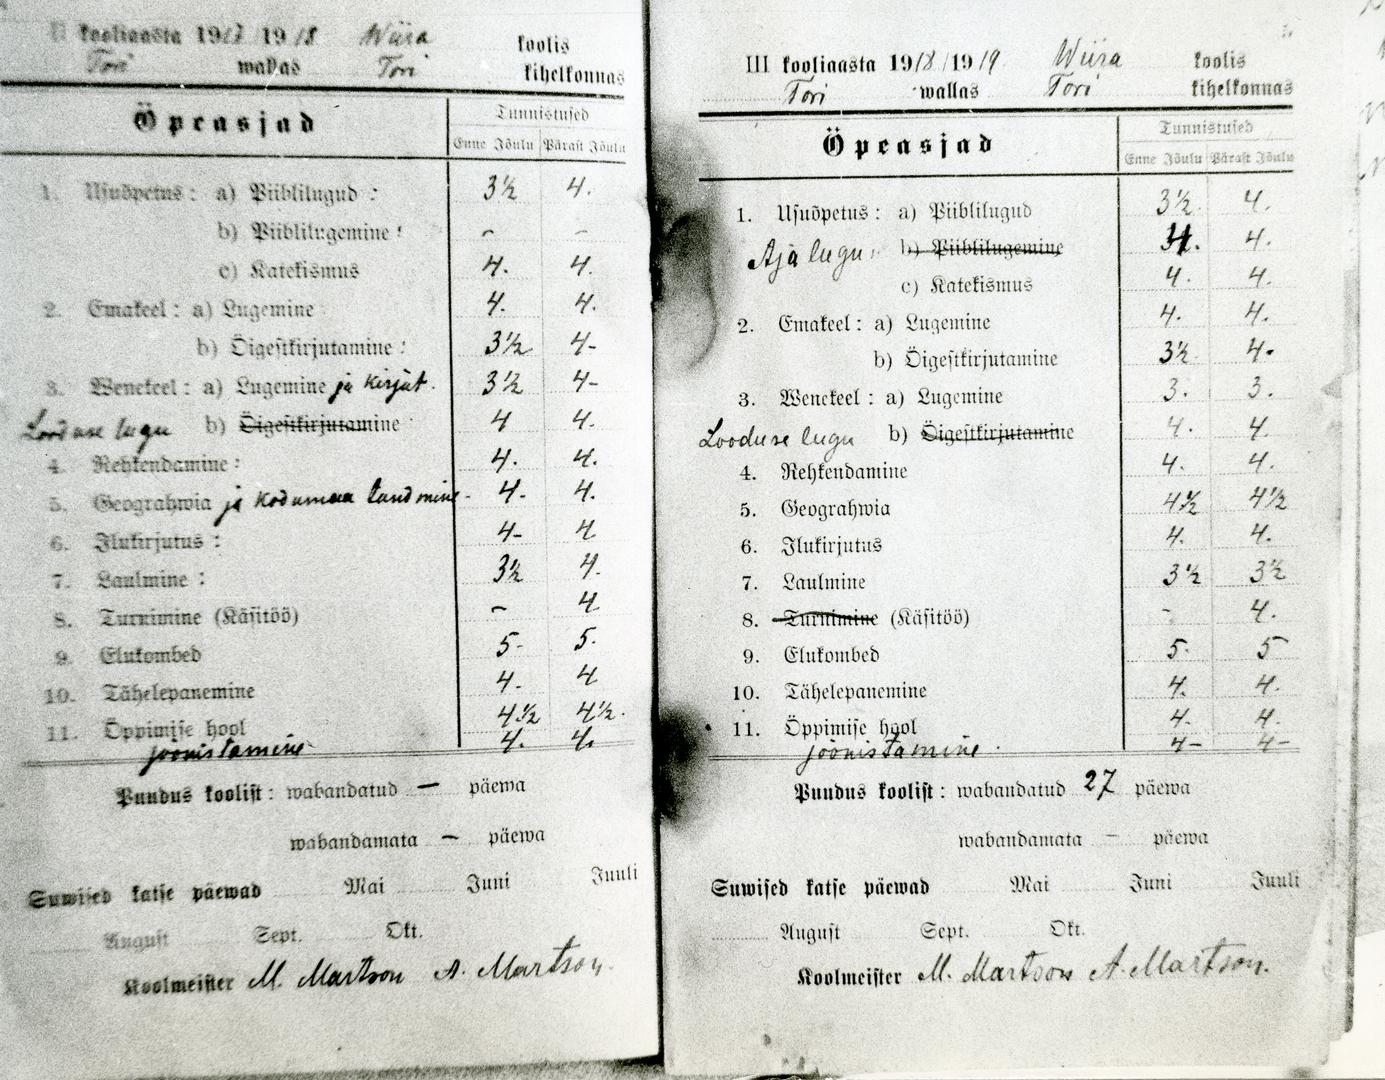 II kooliaasta 1917/1918 Wiira koolis
Tori wallas Tori kihelkonnas
Õpeasjad
Tunnistused
Enne Jõulu Pärast Jõulu
1. Usuõpetus: a) Piiblilugud: 3½ 4.
b) Piiblilugemine: – –
c) Katekismus 4. 4.
2. Emakeel: a) Lugemine 4. 4.
b) Õigestkirjutamine: 3½ 4-
3. Wenekeel: a) Lugemine ja kirjut. 3½ 4-
Looduse lugu b) Õigestkirjutamine 4 4.
4. Rehkendamine: 4. 4.
5. Geograhwia ja kodumaa tundmine- 4- 4.
6. Ilukirjutus: 4- 4.
7. Laulmine: 3½ 4.
8. Turnimine (Käsitöö) – 4.
9. Elukombed 5- 5.
10. Tähelepanemine 4. 4
11. Õppimise hool 4½ 4½.
joonistamine 4. 4.
Puudus koolist: wabandatud – päewa
wabandamata – päewa
Suwised katse päewad Mai Juni Juuli
August Sept. Okt.
Koolmeister M. Martson A. Martson.
III kooliaasta 1918/1919 Wiira koolis
Tori wallas Tori kihelkonnas
Õpeasjad
Tunnistused
Enne Jõulu Pärast Jõulu
1. Usuõpetus: a) Piiblilugud 3½. 4.
Ajalugu b) Piiblilugemine 4. 4.
c) Katekismus 4. 4.
2. Emakeel: a) Lugemine 4. 4.
b) Õigestkirjutamine 3½ 4.
3. Wenekeel: a) Lugemine 3. 3.
Looduse lugu b) Õigestkirjutamine 4. 4.
4. Rehkendamine 4. 4.
5. Geograhwia 4½ 4½
6. Ilukirjutus 4. 4.
7. Laulmine 3½ 3½
8. Turnimine (Käsitöö) - 4.
9. Elukombed 5. 5
10. Tähelepanemine 4. 4.
11. Õppimise hool 4. 4.
joonistamine 4- 4-
Puudus koolist: wabandatud 27 päewa
wabandamata – päewa
Suwised katse päewad Mai Juni Juuli
August Sept. Okt.
Koolmeister M. Martson A. Martson.